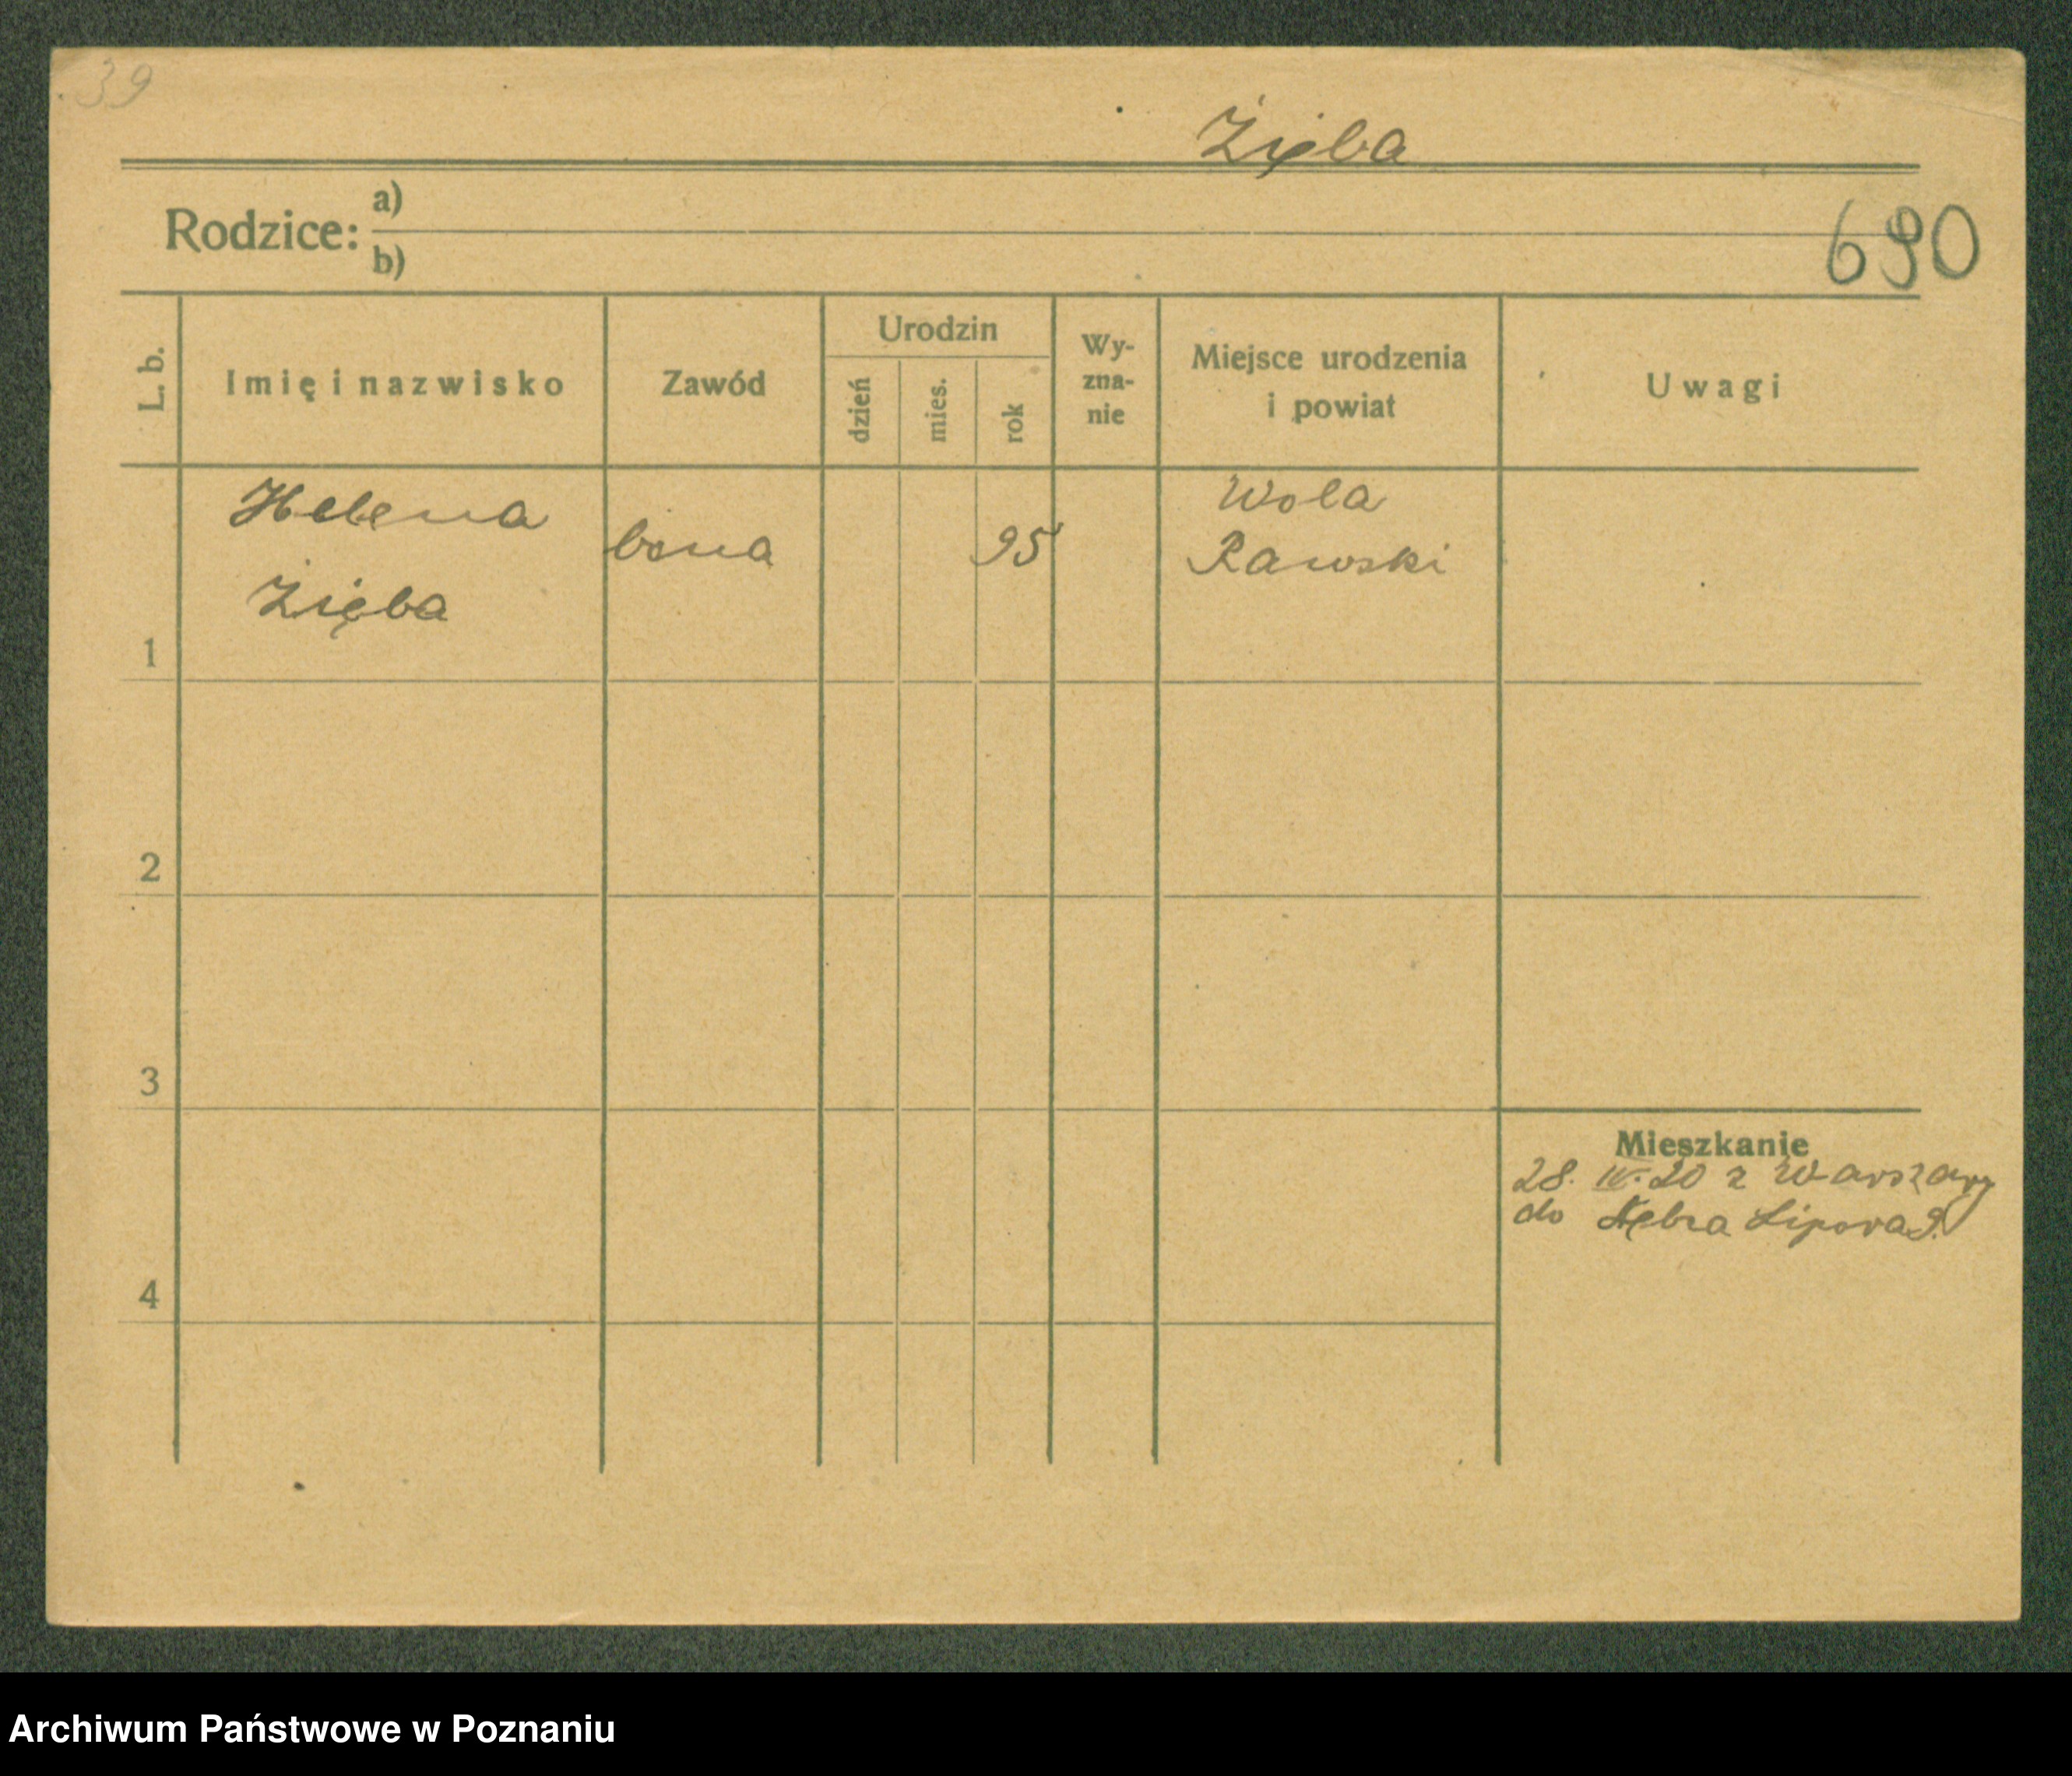 39
Zięba
Rodzice: a)
b)
690
L. b.
Imię i nazwisko
Zawód
Urodzin
dzień
mies.
rok
Wy-
zna-
nie
Miejsce urodzenia
i powiat
Uwagi
Helena
Zięba
bona
95
Wola
Rawski
1
2
3
4
Mieszkanie
28. IV. 20 z Warszawy
do
Archiwum Państwowe w Poznaniu